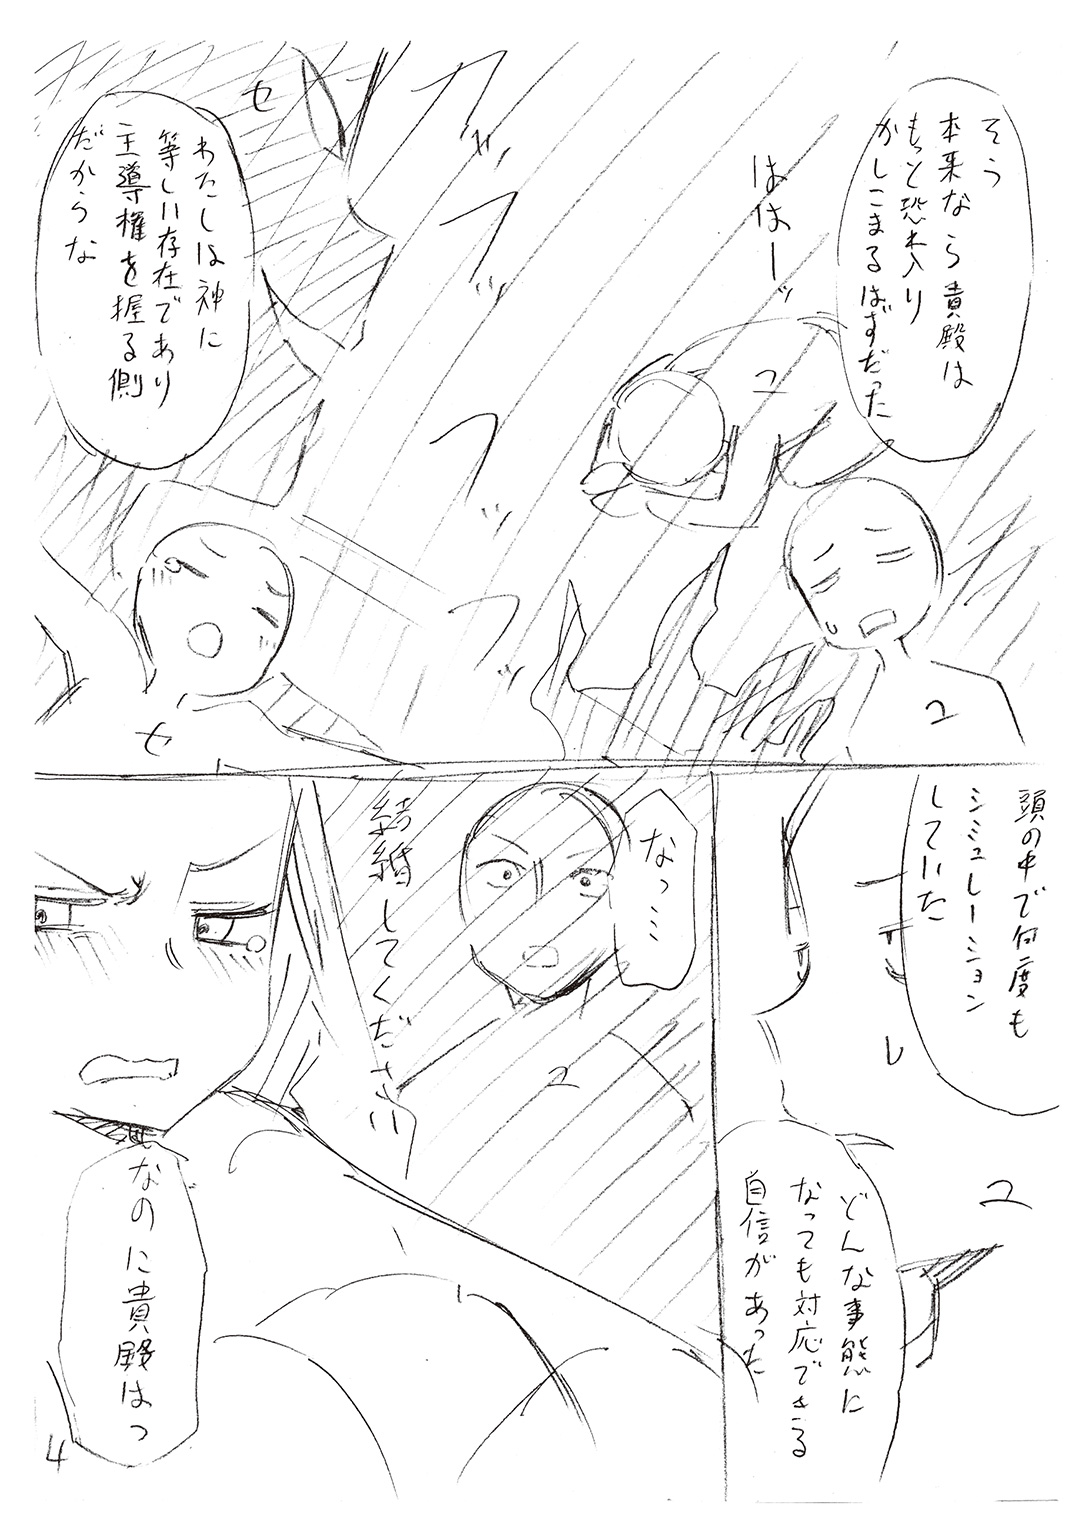 そう
本来なら貴殿は
もっと恐れ入り
かしこまるはずだった
ははーッ
ユ
ユ
フッ
フッ
フッ
フッ
セ
わたしは神に
等しい存在であり
主導権を握る側
だからな
セ
頭の中で何度も
シミュレーション
していた
ユ
どんな事態に
なっても対応できる
自信があった
なっ…
ユ
結婚してください
なのに貴殿はっ
4